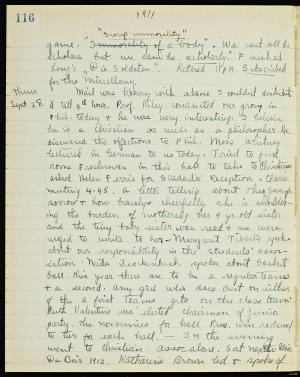 116
1911
"Group immorality"
game. "Immorality of a body". "We cant all be
scholars but we can be scholarly." Finished
Lenz's "Die Soldaten". Retired 10 P.M. Subscribed
for the "Miscellany.
Thurs.
Sept. 28.
Mail was heavy with above I couldnt distribute
it till 9 hour. Prof. Riley conducted our group in
Phil. today & he was very interesting. I believe
he is a Christian as well as a philosopher. He
discussed the objections to Phil. Miss Whitney
lectured in German to us today. Tried to find
some Freshman in this hall to take to Christians
asked Helen Ferris for Students' Reception. Class
meeting 4.45. A letter telling about
sorrow & how bravely & cheerfully she is shouldering
the burden of mothering her 9 yr. old sister
and the tiny baby sister was read & we were
urged to write to her. Margaret spoke
about our responsibility in the Students' association.
spoke about basket
ball. This year there are to be 2 regular teams
& a second. Any girl who does best on either
of the 2 first teams gets on the class team.
Ruth Valentine was elected chairman of junior
party. The nominees for hall Pres. were reduced
to two for each hall. — In the evening
went to Christian association. Sat next to
Du Bois 1912. Katharine Brown led & spoke of